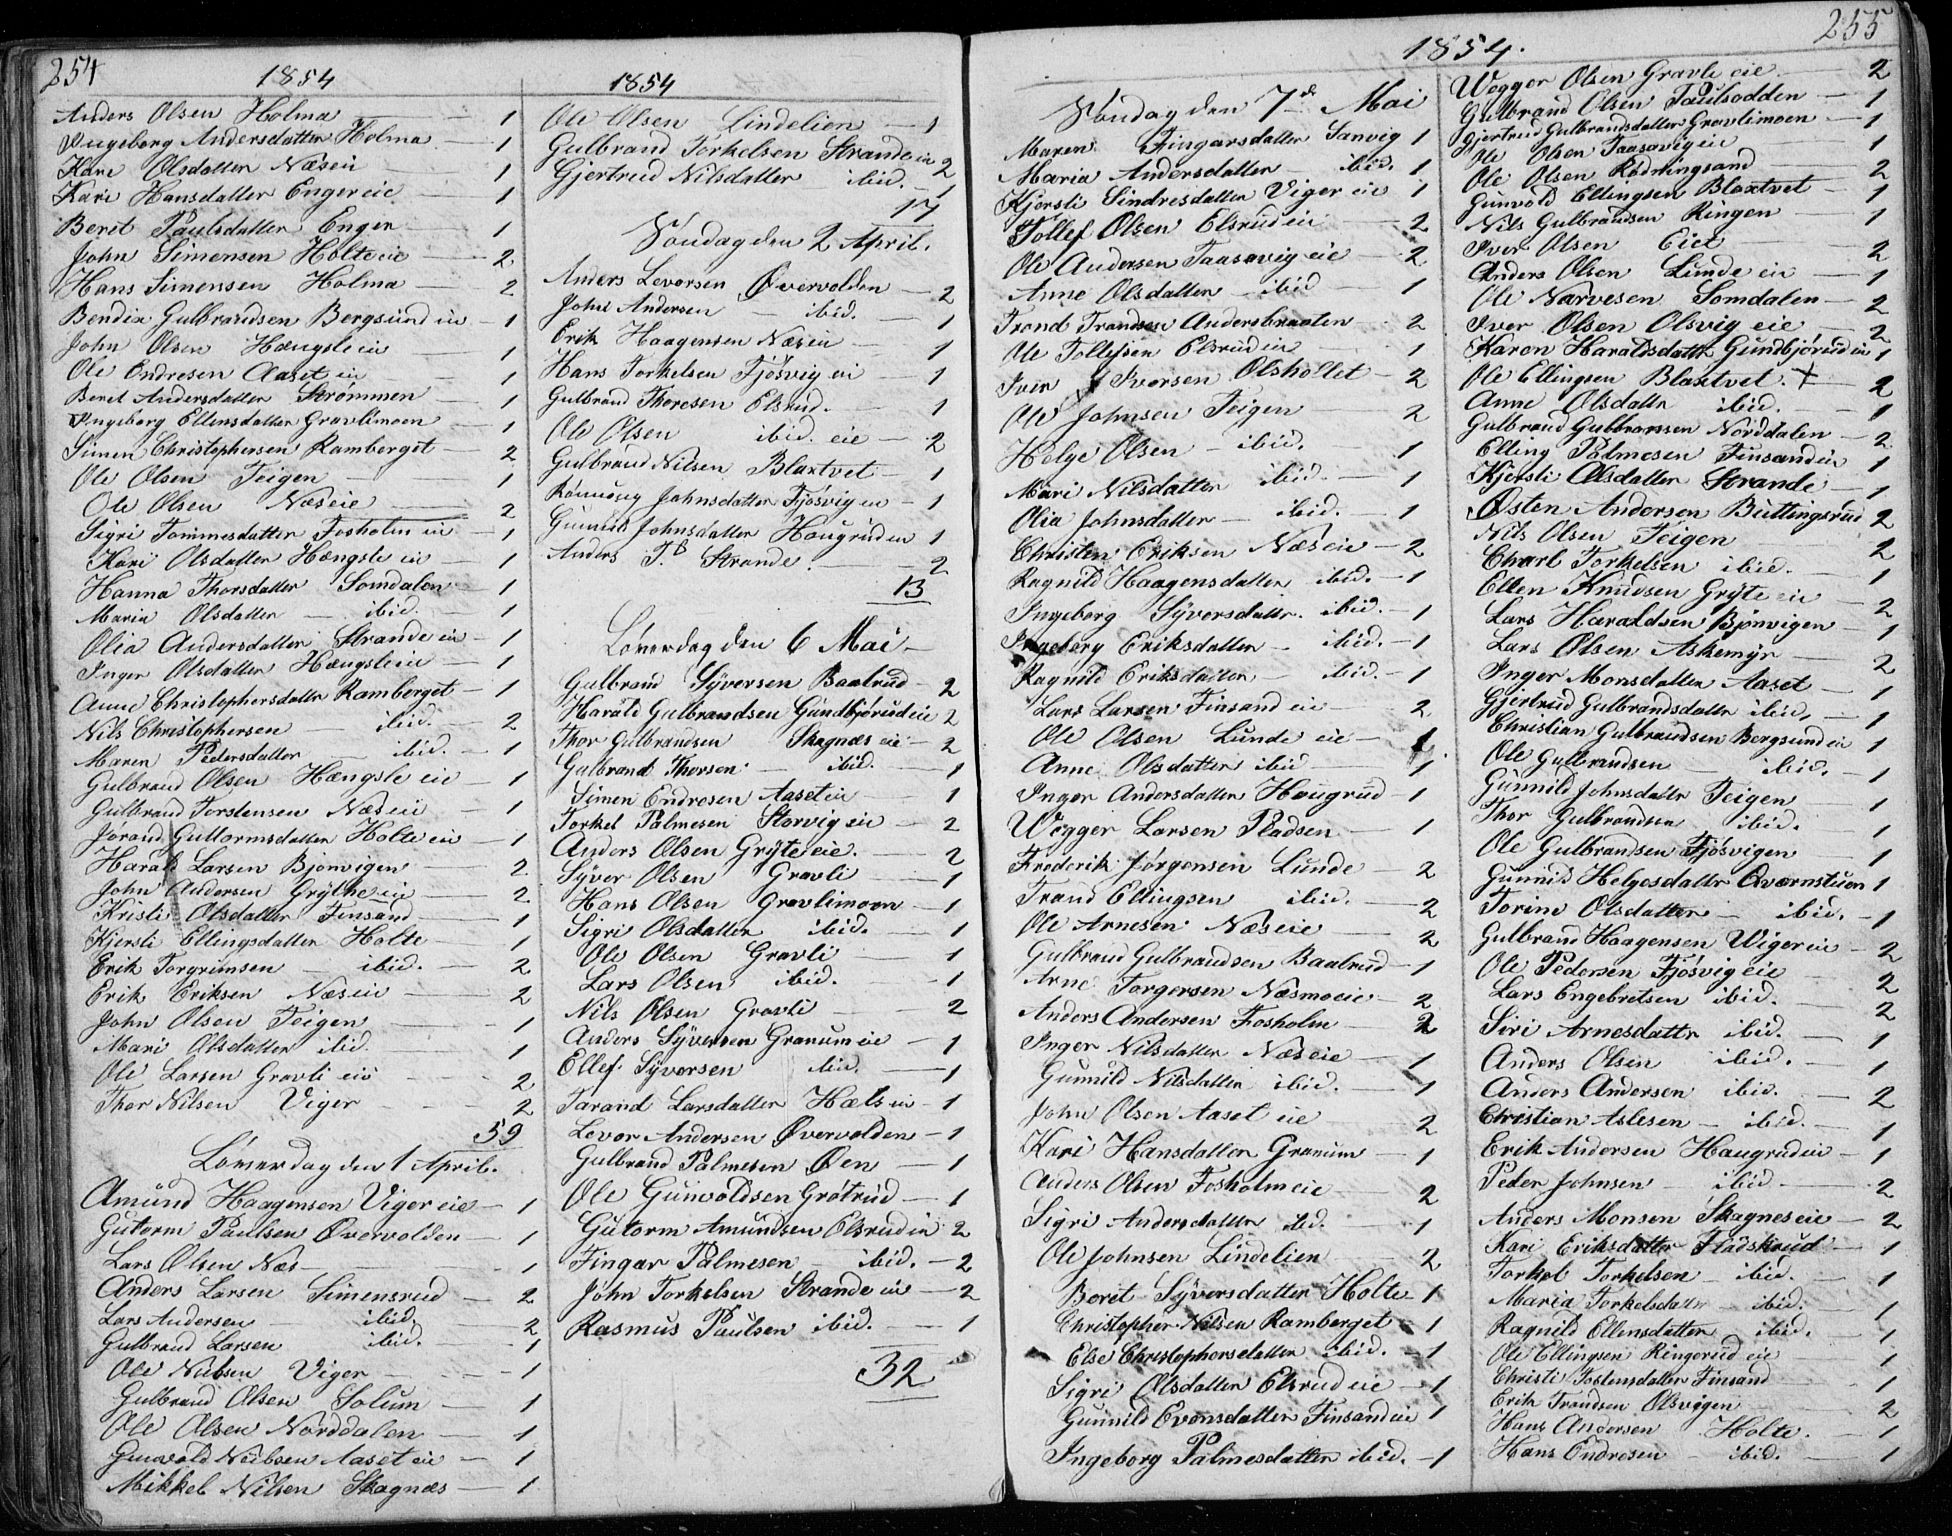 254
1854
Anders Olsen Holma — 1
Ingeborg Andersdatter Holma — 1
Kari Olsdatter Næseie — 1
Kari Hansdatter Enger eie — 1
Beret Paulsdatter Enger — 1
John Simensen Holte eie — 2
Hans Simensen Holma — 2
Bendix Gulbrandsen Bergsund eie — 1
John Olsen Hængsle eie — 1
Ole Endresen Aaset eie — 1
Beret Andersdatter Strømmen — 1
Ingeborg Ellensdatter Gravlimoen — 1
Simen Christophersen Ramberget — 2
Ole Olsen Teigen — 1
Ole Olsen Næseie — 2
Sigri Tommesdatter Fosholm eie — 1
Kari Olsdatter Hængsle eie — 1
Hanna Thorsdatter Somdalen — 1
Maria Olsdatter — ibid. — 1
Olia Andersdatter Strande eie — 1
Inger Olsdatter Hængsle eie — 1
Anne Christophersdatter Ramberget — 1
Nils Christophersen — ibid. — 2
Maren Pedersdatter — ibid. — 1
Gulbrand Olsen Hængsle eie — 1
Gulbrand Torstensen Næseie — 1
Jorand Guttormsdatter Holte eie — 1
Harald Larsen Bjonvigen — 2
John Andersen Grythe eie — 2
Kristi Olsdatter Finsand — 1
Kjersti Ellingsdatter Holte — 1
Erik Torgrimsen — ibid. — 2
Erik Eriksen Næseie — 2
John Olsen Teigen — 1
Mari Olsdatter ibid. — 1
Ole Larsen Gravli eie — 2
Thor Nilsen Viger — 2
59
Løverdag den 1 April.
Amund Haagensen Viger eie — 1
Gutorm Paulsen Øvervolden — 1
Lars Olsen Næs — 1
Anders Larsen Simensrud — 2
Lars Andersen — ibid. — 2
Gulbrand Larsen — ibid. — 1
Ole Nubsen Viger — 1
Gulbrand Olsen Solum — 1
Ole Olsen Norddalen — 1
Gunvold Nubsen Aaset eie — 1
Mikkel Nilsen Skagnæs — 1
1854
Ole Olsen Lindelien — 1
Gulbrand Torkelsen Strande eie 2
Gjertrud Nilsdatter ibid. — 1
17
Søndag den 2 April.
Anders Levorsen Øvervolden — 2
John Andersen — ibid. — 1
Erik Haagensen Næseie — 1
Hans Torkelsen Fjøsvig eie — 1
Gulbrand Thoresen Elsrud. — 1
Ole Olsen ibid. eie — 2
Gulbrand Nilsen Blaxtvet — 1
Rønnoug Johnsdatter Fjøsvig eie — 1
Gunnild Johnsdatter Hougrud eie 1
Anders T. Strande. — 2
13
Løverdag den 6 Mai —
Gulbrand Syversen Baalrud — 2
Harald Gulbrandsen Gundbjørud eie 2
Thor Gulbrandsen Skagnæs eie — 2
Gulbrand Thorsen — ibid. — 1
Simen Endresen Aaset eie — 1
Torkel Palmesen Storvig eie — 2
Anders Olsen Gryte eie. — 2
Syver Olsen Gravli — 1
Hans Olsen Gravlimoen — 1
Sigri Olsdatter ibid. — 1
Ole Olsen Gravli — 1
Lars Olsen ibid. — 1
Nils Olsen Gravli — 2
Anders Syversen Granum eie — 1
Ellef Syversen ibid. — 1
Tarand Larsdatter Hæls eie — 1
Levor Andersen Øvervolden — 1
Gulbrand Palmesen Øen — 1
Ole Gunvoldsen Grøtrud — 1
Gutorm Amundsen Elsrud eie 2
Fingar Palmesen ibid. — 2
John Torkelsen Strande eie — 2
Rasmus Paulsen ibid. — 1
32
255
1854.
Søndag den 7d Mai
Maren Fingarsdatter Sanvig 1
Maria Andersdatter ibid. 1
Kjersti Sindresdatter Viger eie 1
Tollef Olsen Elsrud eie — 2
Ole Andersen Taasavig eie — 2
Anne Olsdatter — ibid — 1
Trond Trondsen Andersbraaten — 2
Ole Tollefsen Elsrud eie — 1
Iver Iversen Olshollet — 2
Ole Johnsen Teigen 2
Helge Olsen — ibid. — 1
Mari Nilsdatter ibid. — 1
Olia Johnsdatter — ibid. — 1
Christen Eriksen Næseie — 2
Ragnild Haagensdatter ibid. — 1
Ingeborg Syversdatter. ibid. — 1
Ingeborg Eriksdatter — ibid. — 1
Ragnild Eriksdatter — ibid. — 1
Lars Larsen Finsand eie — 2
Ole Olsen Lunde eie — 1
Anne Olsdatter ibid 1
Inger Andersdatter Hougrud — 1
Vegger Larsen Pladsen — 1
Frederik Jørgensen Lunde — 2
Trand Ellingsen ibid. — 2
Ole Arnesen Næseie — 2
Gulbrand Gulbrandsen Baalrud — 1
Arne Torgersen Næsmoeie — 2
Anders Andersen Fosholm — 2
Inger Nilsdatter Næseie — 1
Gunnild Nilsdatter ibid. — 1
John Olsen Aaset eie — 2
Kari Hansdatter Granum — 1
Anders Olsen Fosholm eie — 2
Sigri Andersdatter ibid. — 1
Ole Johnsen Lindelien — 2
Beret Syversdatter Holte 1
Christopher Nilsen Ramberget — 1
Else Christophersdatter ibid. — 1
Sigri Olsdatter Elsrud eie — 1
Gunnild Evensdatter Finsand eie 1
Ingeborg Palmesdatter ibid. — 1
Vegger Olsen Gravli eie — 2
Gulbrand Olsen Paulsodden — 1
Gjertrud Gulbrandsdatter Gravlimoen — 1
Ole Olsen Taasavig eie — 1
Ole Olsen Rødningsand — 2
Gunvold Ellingsen Blaxtvet — 1
Nils Gulbrandsen Ringen — 1
Iver Olsen Eiet — 2
Anders Olsen Lunde eie — 1
Ole Narvesen Somdalen — 2
Iver Olsen Olsvig eie — 2
Karen Haraldsdatter Gundbjørud eie 1
Ole Ellingsen Blaxtvet. + 2
Anne Olsdatter ibid. — 1
Gulbrand Gulbransen Norddalen — 2
Elling Palmesen Finsand eie 1
Kjersti Olsdatter Strande — 1
Østen Andersen Buttingsrud 2
Nils Olsen Teigen 2
Charl Torkelsen ibid. — 1
Ellen Knudsen Gryte eie — 2
Lars Haraldsen Bjonvigen — 1
Lars Olsen Askemyr — 2
Inger Monsdatter Aaset — 1
Gjertrud Gulbrandsdatter ibid. — 1
Christian Gulbrandsen Bergsund eie 1
Ole Gulbrandsen — ibid. — 1
Gunnild Johnsdatter Teigen 1
Thor Gulbrandsen ibid. 1
Ole Gulbrandsen Fjøsvigen 1
Gunnild Helgesdatter Qværnstuen 1
Torine Olsdatter — ibid. — 1
Gulbrand Haagensen Viger eie — 2
Ole Pedersen Fjøsvig eie — 2
Lars Engebretsen ibid. — 2
Siri Arnesdatter ibid. — 1
Anders Olsen ibid. — 1
Anders Andersen ibid. — 2
Christian Aslesen — ibid. — 1
Erik Andersen Haugrud eie — 1
Peder Johnsen — ibid. — 2
Anders Monsen Skagnes eie — 2
Kari Eriksdatter Fladskrud — 1
Torkel Torkelsen — ibid. — 1
Maria Torkelsdatter — ibid. — 1
Ragnild Ellensdatter ibid. — 1
Ole Ellingsen Ringerud eie 1
Christi Tostensdatter Finsand 1
Erik Trondsen Olsvigen — 2
Hans Andersen Holte. — 1
Hans Endresen — ibid. — 1